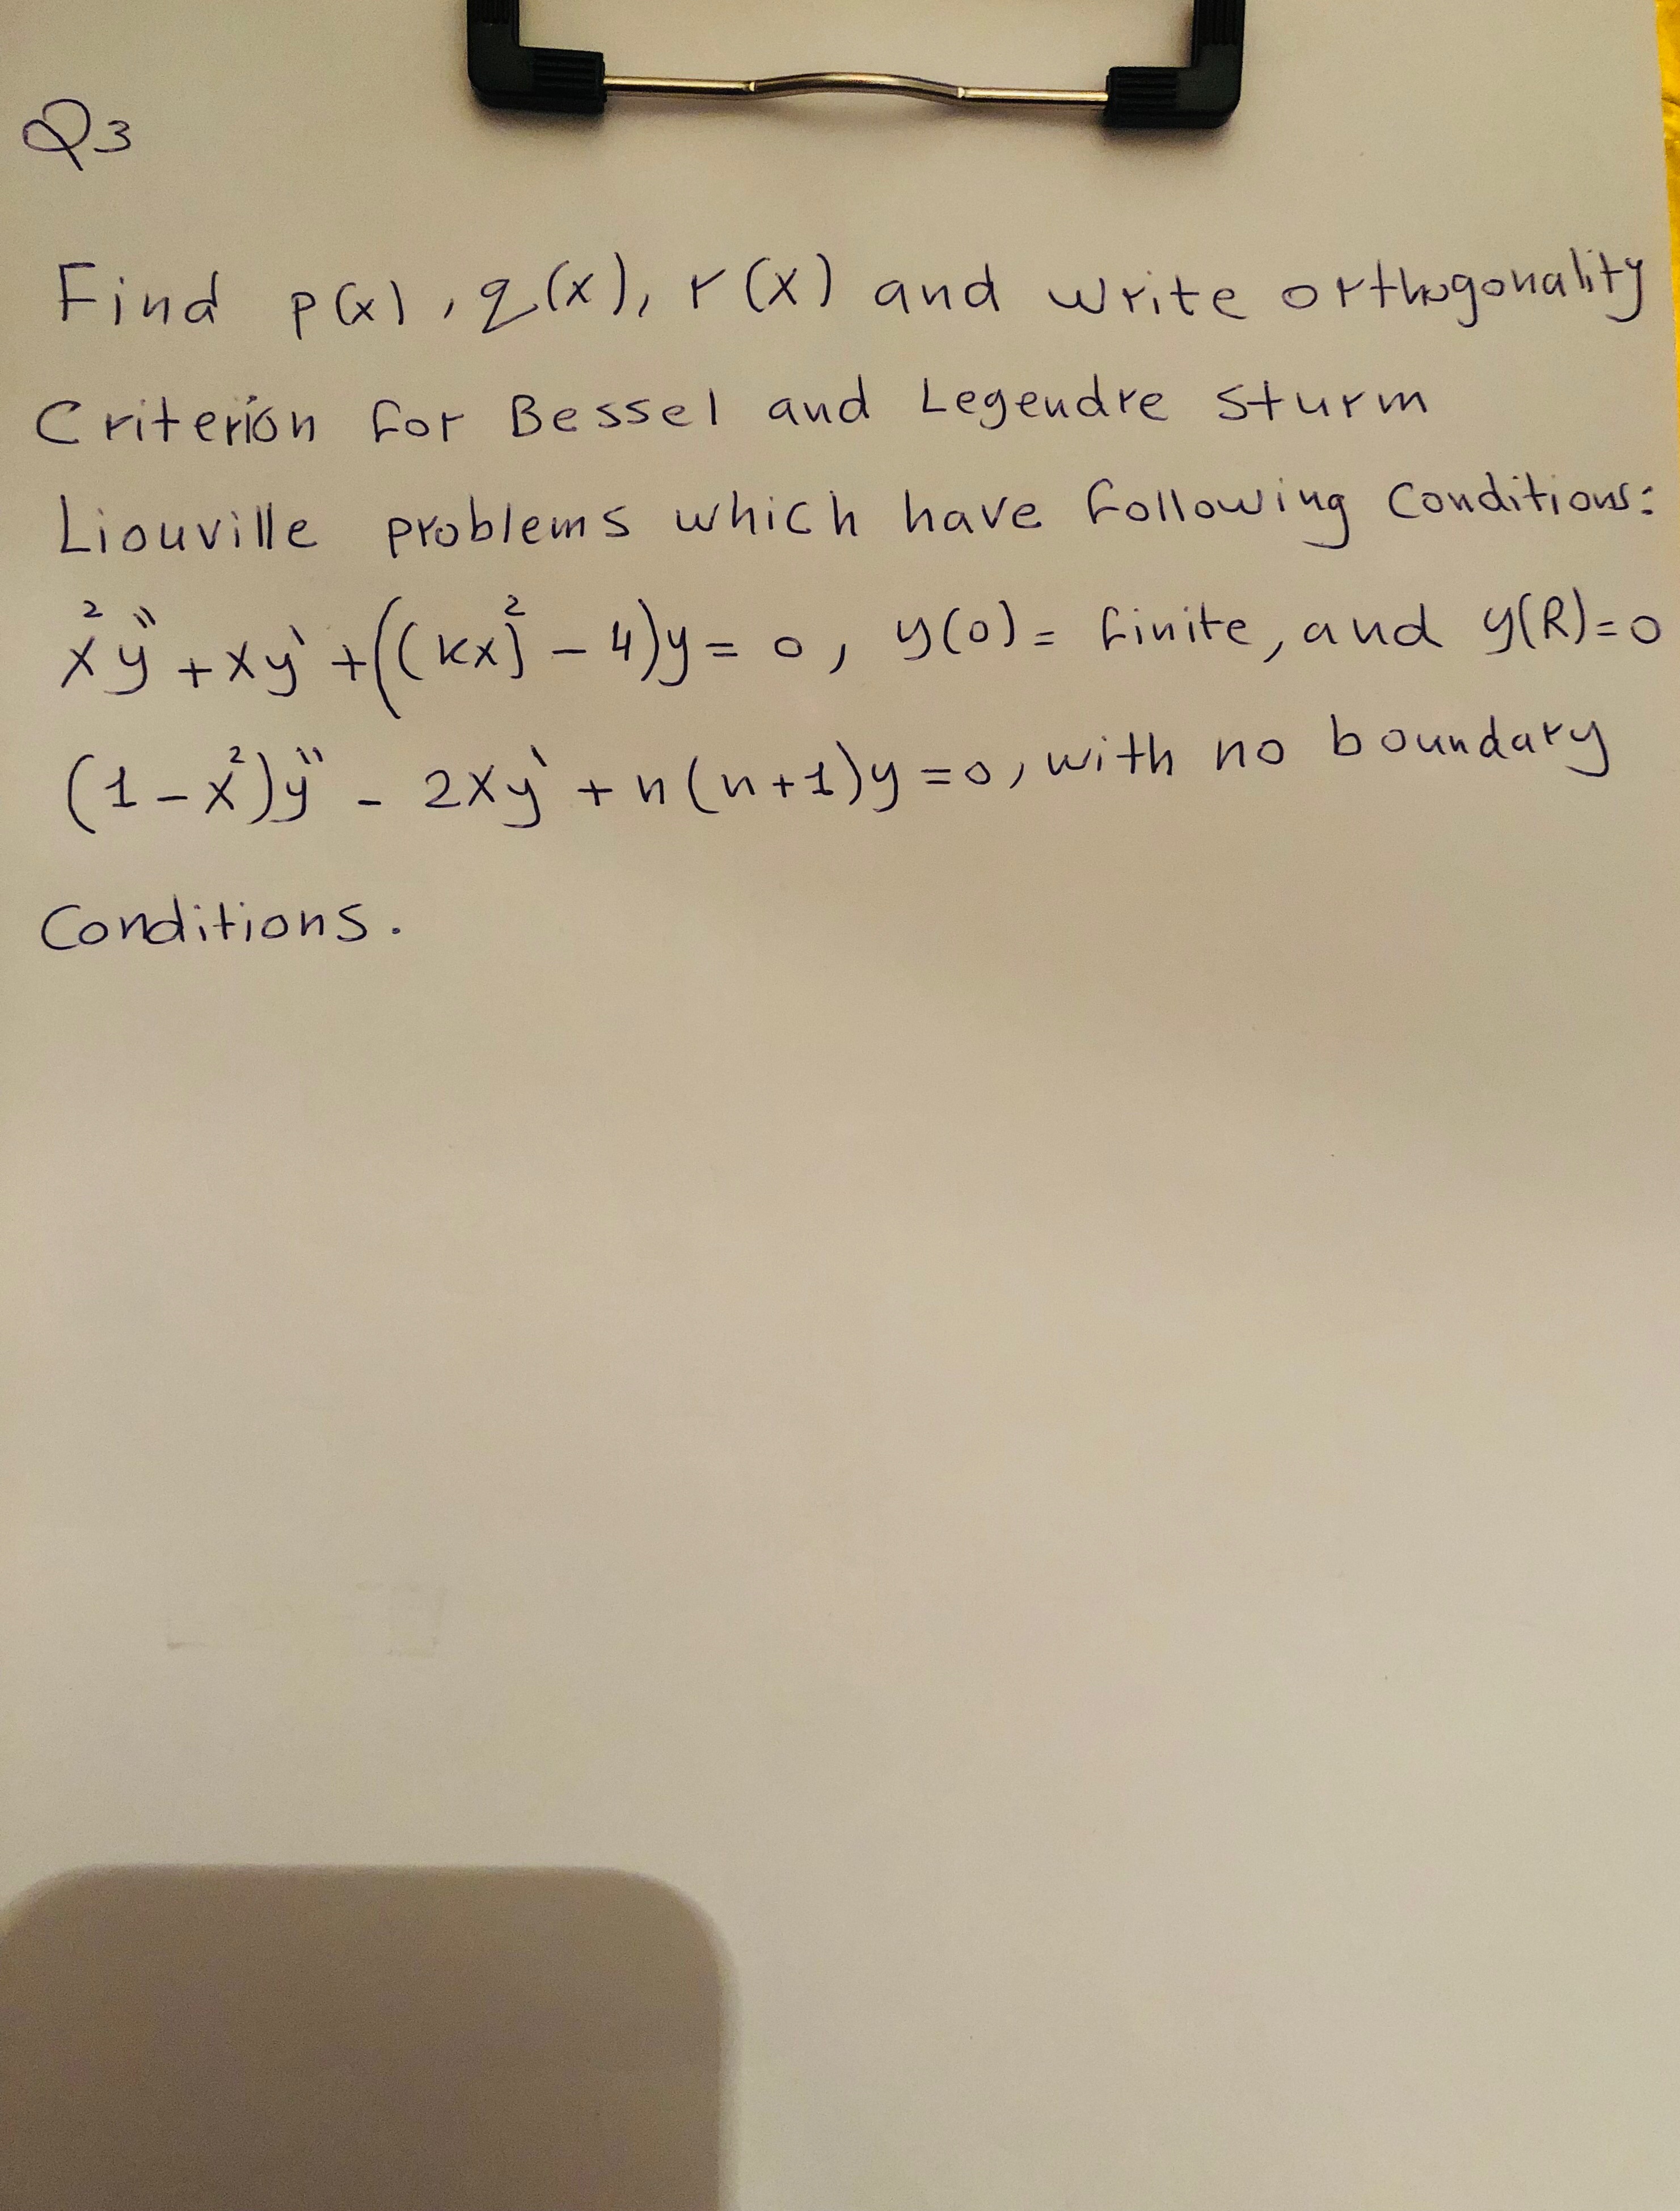 Q3
Find p(x), q(x), r(x) and write orthogonality
Criterion for Bessel and Legendre sturm
Liouville problems which have following Conditions:
x²y'' + xy' + ((kx)² - 4)y = 0, y(0) = finite, and y(R)=0
(1-x²)y'' - 2xy' + n(n+1)y = 0, with no boundary
Conditions.